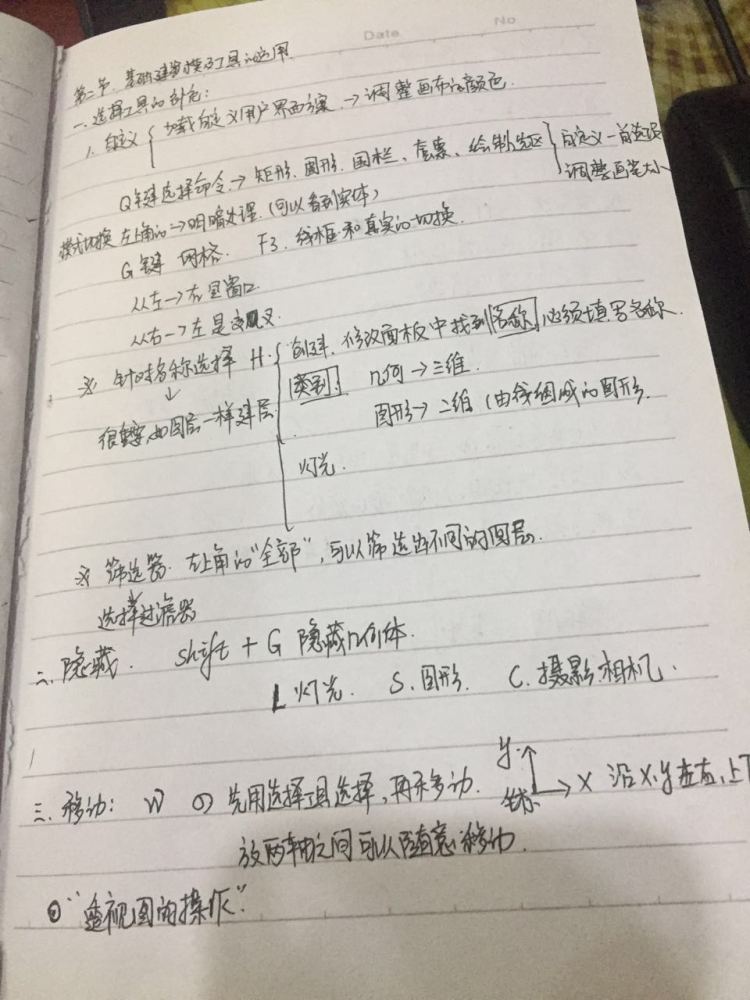 Date No
第二节. 基础建模及工具的运用.
一. 选择工具的补充:
1. 自定义 { 加载自定义用户界面方案. → 调整画布的颜色.
Q键选择命令. → 矩形. 圆形. 围栏、套索、绘制选区 } 自定义—首选项
调整画笔大小
模式切换 左上角的 → 明暗处理. (可以看到实体)
G 键 网格. F3. 线框和真实的切换.
从左→右是窗口.
从右→左是叉.
※ 针对名称选择 H. { 创建. 修改面板中找到 名称 必须填写名称.
↓ 类别: 几何 → 三维.
很重要, 如图层一样建层. 图形 → 二维 (由线组成的图形.
灯光.
※ 筛选器. 左上角的"全部", 可以筛选出不同的图层.
选择过滤器
二. 隐藏. shift + G 隐藏几何体.
L 灯光. S. 图形. C. 摄影.相机.
三. 移动: W ① 先用选择工具选择, 再来移动. y → X 沿X.y左右, 上下
放两轴之间可以随意移动.
② "透视图的操作".